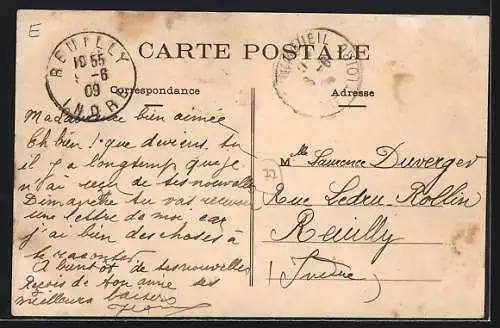 E
CARTE POSTALE
REUILLY
10 55
-6
09
INDRE
Correspondance
Adresse
bien aimée
Eh bien ! que deviens tu
il y a longtemp que je
n'ai reçu de tes nouvelles
Dimanche tu vas recevoir
une lettre de moi car
j'ai bien des choses à
te raconter
A bientôt de tes nouvelles
Reçois de ton amie ses
meilleurs baisers
Mlle Laurence Duverger
72
Rue Ledru-Rollin
Reuilly
(Indre)